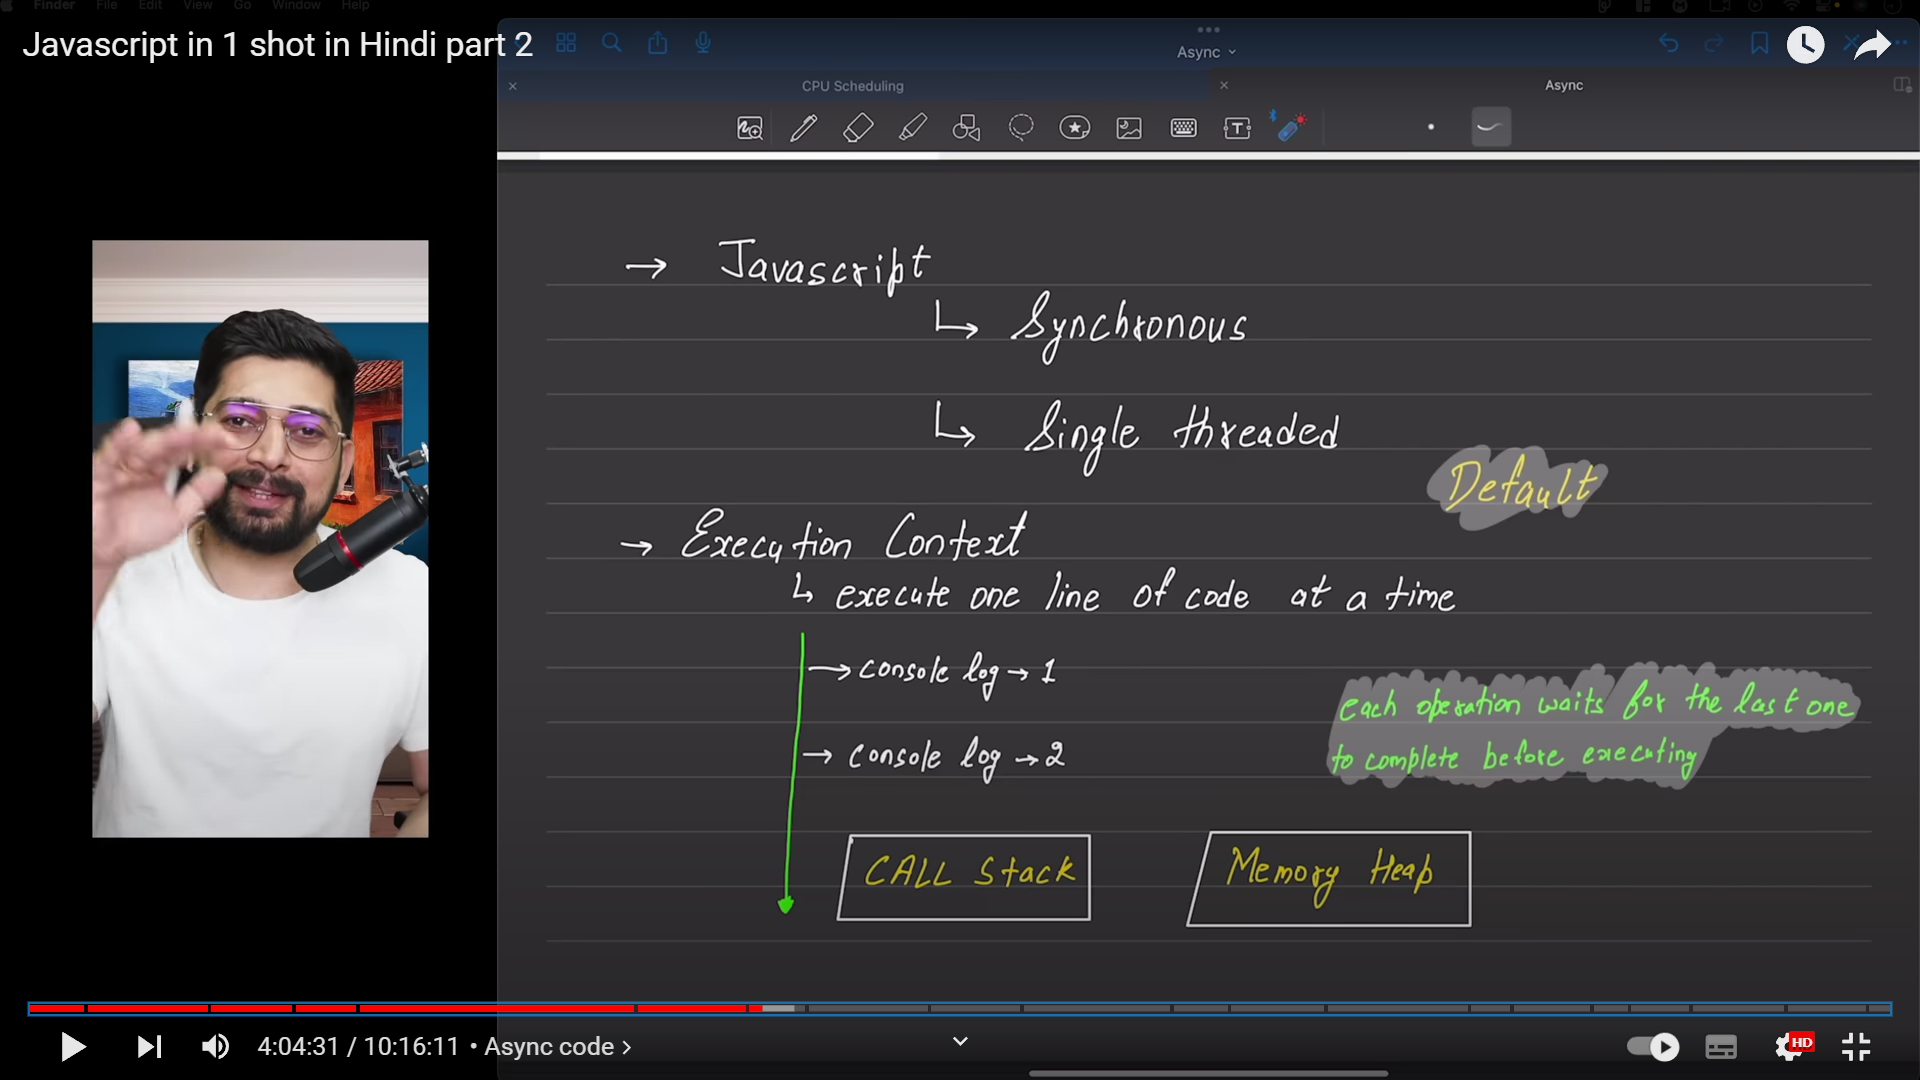 Finder File Edit View Go Window Help
Javascript in 1 shot in Hindi part 2
Async
CPU Scheduling
Async
T
→ Javascript
↳ Synchronous
↳ Single threaded
Default
→ Execution Context
↳ execute one line of code at a time
→ console log → 1
→ console log → 2
each operation waits for the last one
to complete before executing
CALL Stack
Memory Heap
4:04:31 / 10:16:11 • Async code >
HD